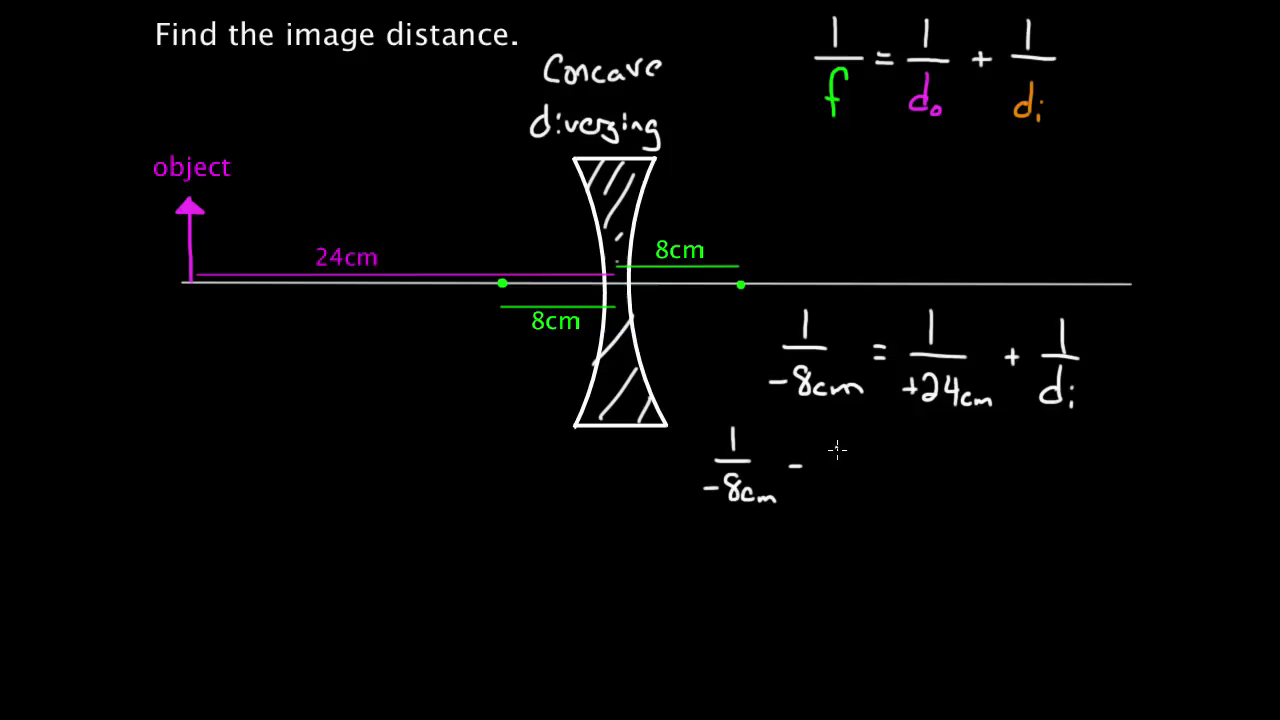 Find the image distance.
Concave
diverging
1/f = 1/do + 1/di
object
24cm
8cm
8cm
1/-8cm = 1/+24cm + 1/di
1/-8cm -